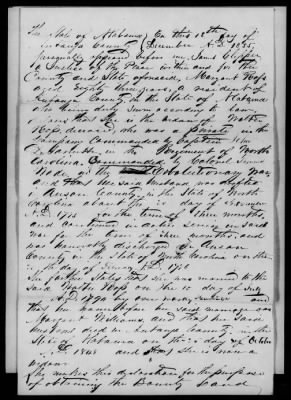 The State of Alabama } On this 10th day of
Autauga County } December A.D. 1855,
Personally appeared before me,
a Justice of the Peace within and for the
County and State aforesaid, Margaret Ross
aged Eighty three years, a resident of
Autauga County, in the State of Alabama
who being duly sworn according to law
that she is the widow of Walter
Ross, deceased, who was a private in the
Company Commanded by Captain
in the Regiment of North
Carolina Commanded by Colonel Samuel
Wade in the Revolutionary War
and that her said husband was drafted
in Anson County in the State of North
Carolina about the day of November
A.D. 1775 for the term of three months,
and continued in actual service in said
war for the term of three months, and
was honorably discharged in Anson
County in the State of North Carolina on the
day of
She further States that she was married to the
said Walter Ross on the 10 day of July
A.D. 1794 by
that her name before her said marriage was
Margaret Williams and that her said
husband died in Autauga County, in the
State of Alabama on the day of October
1848 and that she is now a
widow.
She makes this declaration for the purpose
of obtaining the Bounty Land